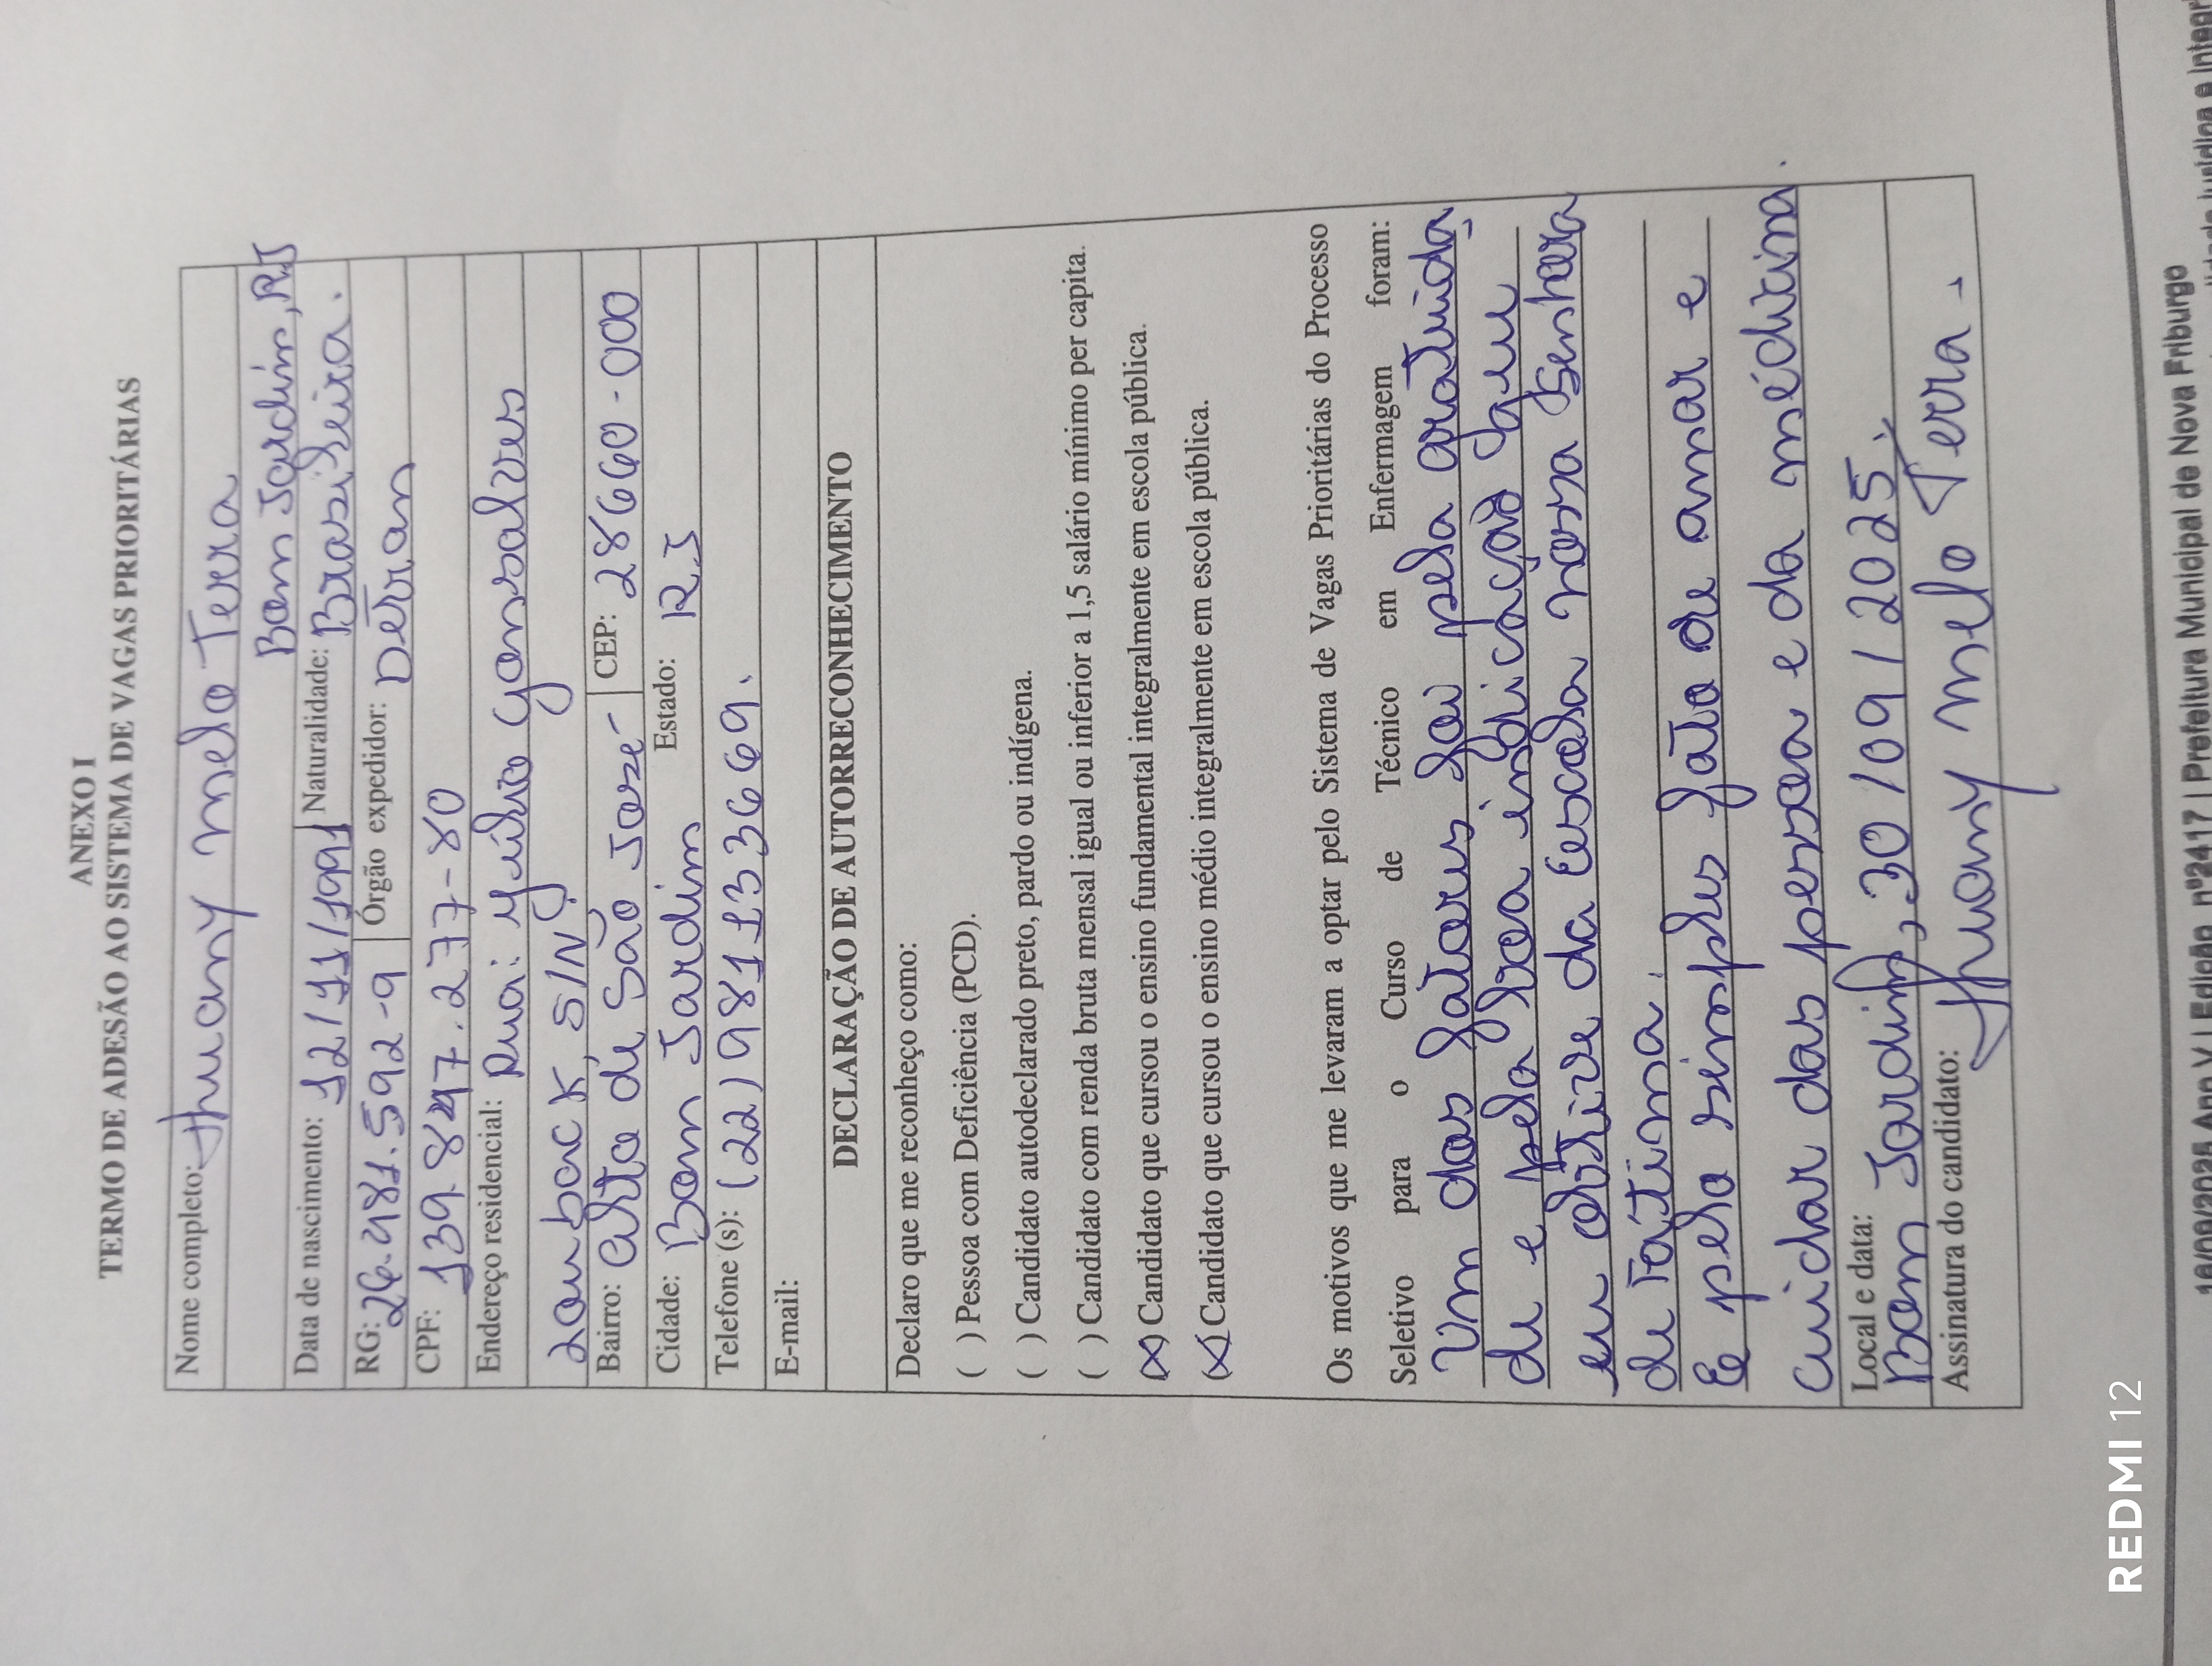 ANEXO I
TERMO DE ADESÃO AO SISTEMA DE VAGAS PRIORITÁRIAS
Nome completo: Thuany Melo Terra
Bom Jardim, RJ
Data de nascimento: 12/11/1991 Naturalidade: Brasileira.
RG: 26.481.592-9 Órgão expedidor: Detran
CPF: 139.847.277-80
Endereço residencial: Rua: Yúlio Gonsalves
Zouback, S/Nº
Bairro: Alto de São José CEP: 28660-000
Cidade: Bom Jardim Estado: RJ
Telefone (s): (22) 981133669.
E-mail:
DECLARAÇÃO DE AUTORRECONHECIMENTO
Declaro que me reconheço como:
( ) Pessoa com Deficiência (PCD).
( ) Candidato autodeclarado preto, pardo ou indígena.
( ) Candidato com renda bruta mensal igual ou inferior a 1,5 salário mínimo per capita.
(X) Candidato que cursou o ensino fundamental integralmente em escola pública.
(X) Candidato que cursou o ensino médio integralmente em escola pública.
Os motivos que me levaram a optar pelo Sistema de Vagas Prioritárias do Processo
Seletivo para o Curso de Técnico em Enfermagem foram:
Um dos fatores foi pela gratuida
de e pela boa indicação que
eu obtive da Escola nossa Senhora
de Fátima.
E pelo simples fato de amar e
cuidar das pessoa e da médicina.
Local e data:
Bom Jardim, 30/09/2025.
Assinatura do candidato: Thuany Melo Terra.
REDMI 12
16/09/2025 Ano V | Edição nº2417 | Prefeitura Municipal de Nova Friburgo